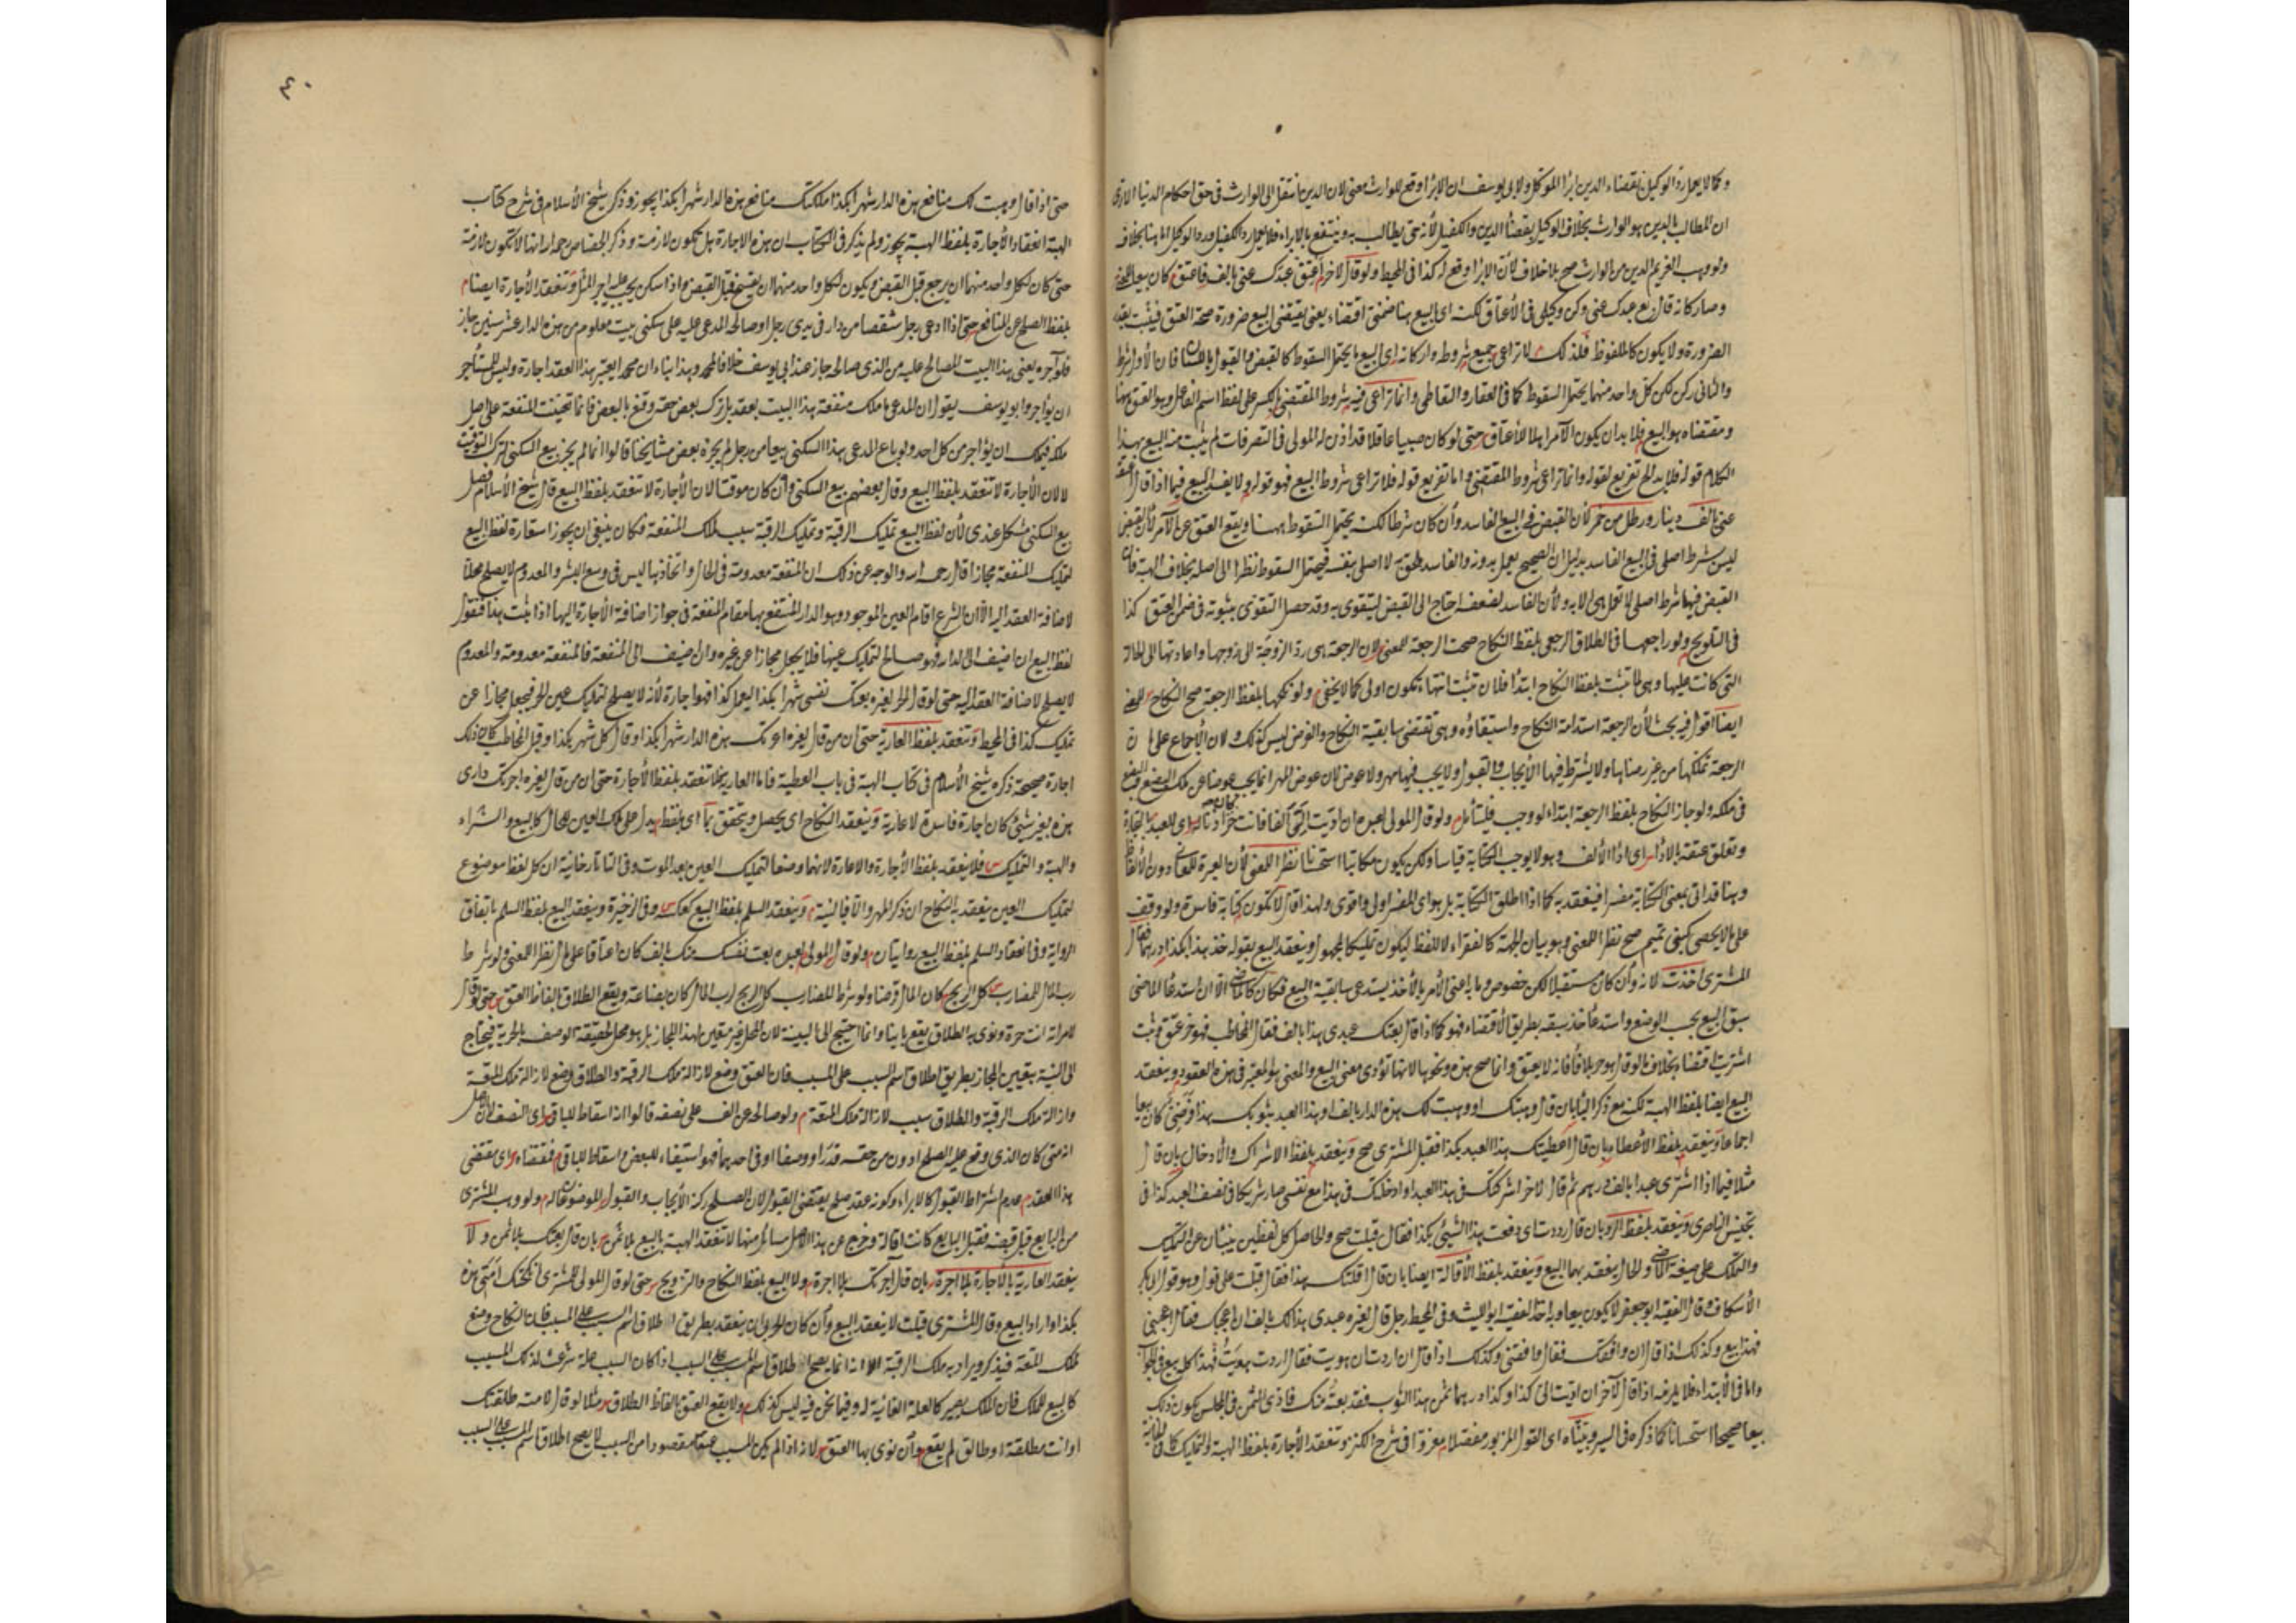 وكما لا يصار د الوكيل بقضاء الدين ابرأ الموكل ولابى يوسف ان الابرا وقع للوارث معنى لان الدين انتقل الى الوارث فى حق احكام الدنيا الا ترى
ان المطالب بالدين هو الوارث بخلاف الوكيل بقضاء الدين والكفيل لأنه متى يطالب به وينتفع بالابراء فلا يعمل رد الكفيل ورد الوكيل اما هنا بخلافه
ولو وهب الغريم الدين من الوارث صح بلا خلاف لأن الابرا وقع له كذا فى المحيط ولو قال لآخر اعتق عبدك عنى بالف فاعتق كان بيعا للمعنى
وصار كانه قال بع عبدك عنى وكن وكيلى فى الأعتاق لكنه اى البيع هنا ضمنى اقتضاء يعنى يقتضى البيع ضرورة صحة العتق فيثبت بقدر
الضرورة ولا يكون كالملفوظ فلذلك لا تراعى جميع شروطه واركانه اى البيع ما يحتمل السقوط كالقبض والقبول باللسان فان الأول شرط
والثانى ركن لكن كل واحد منهما يحتمل السقوط كما فى العقار والتعاطى وانما تراعى فيه شروط المقتضى بالكسر على لفظ اسم الفاعل وهو العتق هنا
ومقتضاه هو البيع فلا بد ان يكون الآمر اهلا للأعتاق حتى لو كان صبيا عاقلا قد اذن له المولى فى التصرفات لم يثبت منه البيع بهذا
الكلام قوله فلا بد الخ تفريع لقوله وانما تراعى شروط المقتضى واما تفريع قوله فلا تراعى شروط البيع فهو قوله ولا يفسد البيع فيما اذا قال اعتقه
عنى بالف دينار ورطل من خمر لأن القبض فى البيع الفاسد وأن كان شرطا لكنه يحتمل السقوط ههنا ويقع العتق عن الآمر لأن القبض
ليس شرط اصلى فى البيع الفاسد بدليل ان الصحيح يعمل بدونه والفاسد ملحق به لا اصلى بنفسه فيحتمل السقوط نظرا الى اصله بخلاف الهبة فان
القبض فيها شرط اصلى لا تعمل هى الا به ولأن الفاسد لضعفه احتاج الى القبض ليتقوى به وقد حصل التقوى بثبوته فى ضمن العتق كذا
فى التلويح ولو راجعها فى الطلاق الرجعى بلفظ النكاح صحت الرجعة للمعنى لان الرجعة هى رد الزوجة الى زوجها واعادتها الى الحالة
التى كانت عليها وهى لما تثبت بلفظ النكاح ابتدأ فلان تثبت انتهاء يكون اولى كما لا يخفى ولو نكحها بلفظ الرجعة صح النكاح للمعنى
ايضا اقول فيه بحث لأن الرجعة استدامة النكاح واستبقاؤه وهى تقتضى سابقية النكاح والفرض ليس كذلك ولان الأجماع على ان
الرجعة تملكها من غير رضاها ولا يشترط فيها الأيجاب والقبول ولا يجب فيها مهر ولا عوض لان عوض المهر انما يجب عوضا عن ملك البضع والبضع
فى ملكه ولو جاز النكاح بلفظ الرجعة ابتداء لو وجب فليتأمل ولو قال المولى لعبده ان اديت الى ألفا فانت حر اذنا له اى للعبد بالتجارة
وتعلق عتقه بالاداء اى اداء الألف وهو لا يوجب الكتابة قياسا ولكن يكون مكاتبا استحسانا نظرا للمعنى لأن العبرة للمعانى دون الألفاظ
وهنا قد اتى بمعنى الكتابة مفسرا فينعقد به كما اذا اطلق الكتابة بل هو اى المفسر اولى واقوى ولهذا قال لا تكون كتابة فاسدة ولو وقف
على ما لا يحصى كبنى تميم صح نظرا للمعنى وهو بيان الجهة كالفقراء لا للفظ ليكون تمليكا لمجهول وينعقد البيع بقوله خذ هذا بكذا درهما فقال
المشترى اخذت لانه وأن كان مستقبلا لكن خصوص مادته اعنى الأمر بالأخذ يستدعى سابقية البيع فكان كالماضى الا ان استدعاء الماضى
سبق البيع بحسب الوضع واستدعاء خذ سبقه بطريق الأقتضاء فهو كما اذا قال بعتك عبدى هذا بالف فقال المخاطب فهو حر عتق ويثبت
اشتريت اقتضاء بخلاف ما لو قال هو حر بلا فاء فانه لا يعتق وانما صح هذه ونحوها لانها تؤدى معنى البيع والمعنى هو المعتبر فى هذه العقود وينعقد
البيع ايضا بلفظ الهبة لكنه مع ذكر البدل بان قال وهبتك او وهبت لك هذه الدار بالف او هذا العبد بثوبك هذا فرضى كان بيعا
اجماعا وينعقد بلفظ الأعطاء بان قال اعطيتك هذا العبد بكذا فقبل المشترى صح وينعقد بلفظ الاشراك والأدخال بان قال
مثلا فيما اذا اشترى عبدا بالف درهم ثم قال لآخر اشركتك فى هذا العبد او ادخلتك فى هذا مع نفسى صار شريكا فى نصف العبد كذا فى
تجنيس الناصرى وينعقد بلفظ الرد بان قال رددت اى دفعت هذا الشئ بكذا فقال قبلت صح والحاصل كل لفظين ينبئان عن التمليك
والتملك على صيغة الماضى والحال ينعقد بهما البيع وينعقد بلفظ الأقالة ايضا بان قال اقلتك هذا فقال قبلت على قول وهو قول ابى بكر
الأسكاف وقال الفقيه ابو جعفر لا يكون بيعا وبه اخذ الفقيه ابو الليث وفى المحيط رجل قال لغيره عبدى هذا لك بالف ان اعجبك فقال اعجبنى
فهذا بيع وكذلك اذا قال ان وافقك فقال وافقنى وكذلك اذا قال ان اردت ان هويت فقال اردت هويت فهذا كله بيع فى الجواب
واما فى الأبتداء فلا يلزمه اذا قال لآخر ان اديت الى كذا وكذا درهما ثمن هذا الثوب فقد بعته منك فادى الثمن فى المجلس يكون ذلك
بيعا صحيحا استحسانا كما ذكره فى السير وبيناه اى القول المزبور مفصلا معزوا فى شرح الكنز وتنعقد الأجارة بلفظ الهبة والتمليك كما فى الخانية
٤٠
حتى اذا قال وهبت لك منافع هذه الدار شهرا بكذا ملكتك منافع هذه الدار شهرا بكذا يجوز وذكر شيخ الأسلام فى شرح كتاب
الهبة انعقاد الأجارة بلفظ الهبة يجوز ولم يذكر فى الكتاب ان هذه الاجارة هل تكون لازمة وذكر الخصاف رحمه الله انها لا تكون لازمة
حتى كان لكل واحد منهما ان يرجع قبل القبض ويكون لكل واحد منهما ان يفسخ قبل القبض واذا سكن يجب عليه اجر المثل وتنعقد الأجارة ايضا
بلفظ الصلح عن المنافع حتى اذا ادعى رجل شقصا من دار فى يدى رجل وصالحه المدعى عليه على سكنى بيت معلوم من هذه الدار عشر سنين جاز
فلو آجره يعنى هذا البيت المصالح عليه من الذى صالحه جاز عند ابى يوسف خلافا لمحمد وهذا بناء ان محمدا يعتبر هذا العقد اجارة وليس للمستأجر
ان يؤاجر وابو يوسف يقول ان المدعى ما ملك منفعة هذا البيت بعقد بل ترك بعض حقه وقنع بالبعض فانما تحينت المنفعة على اصل
ملكه فيملك ان يؤاجر من كل احد ولو باع المدعى هذا السكنى بيعا من رجل لم يجزه بعض مشايخنا قالوا انما لم يجز بيع السكنى لترك التوقيت
لا لان الأجارة لا تنعقد بلفظ البيع وقال بعضهم بيع السكنى وأن كان موقتا لان الأجارة لا تنعقد بلفظ البيع قال شيخ الأسلام فصل
بيع السكنى مشكل عندى لأن لفظ البيع تمليك الرقبة وتمليك الرقبة سبب لملك المنفعة فكان ينبغى ان يجوز استعارة لفظ البيع
لتمليك المنفعة مجازا قال رحمه الله والوجه عن ذلك ان المنفعة معدومة فى الحال واتخاذها ليس فى وسع البشر والمعدوم لا يصلح محلا
لاضافة العقد اليه الا ان الشرع اقام العين الموجود وهو الدار المنتفع بها مقام المنفعة فى جواز اضافة الأجارة اليها اذا ثبت هذا فنقول
لفظ البيع ان اضيف الى الدار فهو صالح لتمليك عينها فلا يجعل مجازا عن غيره وان اضيف الى المنفعة فالمنفعة معدومة والمعدوم
لا يصلح لاضافة العقد اليه حتى لو قال الحر لغيره بعتك نفسى شهرا بكذا ليعمل كذا فهو اجارة لأنه لا يصلح لتمليك عين الحر فيجعل مجازا عن
تمليك كذا فى المحيط وتنعقد بلفظ العارية حتى ان من قال لغيره اعرتك هذه الدار شهرا بكذا او قال كل شهر بكذا وقبل المخاطب كان ذلك
اجارة صحيحة ذكره شيخ الأسلام فى كتاب الهبة فى باب العطية فاما العارية فلا تنعقد بلفظ الأجارة حتى ان من قال لغيره اجرتك دارى
هذه بغير شئ كان اجارة فاسدة لا عارية وينعقد النكاح اى يحصل ويتحقق بما اى بلفظ يدل على ملك العين للحال كالبيع والشراء
والهبة والتمليك فلا ينعقد بلفظ الأجارة والاعارة لانهما وضعا لتمليك العين بعد الموت وفى التاتارخانية ان كل لفظ موضوع
لتمليك العين ينعقد به النكاح ان ذكر المهر والا فبالنية وينعقد السلم بلفظ البيع كعكسه وفى الذخيرة وينعقد البيع بلفظ السلم باتفاق
الرواية وفى انعقاد السلم بلفظ البيع روايتان ولو قال المولى لعبده بعت نفسك منك بالف كان اعتاقا على مال نظرا للمعنى ولو شرط
رب المال للمضارب كل الربح كان المال قرضا ولو شرط للمضارب كل الربح لرب المال كان بضاعة ويقع الطلاق بالفاظ العتق حتى لو قال
لامرأته انت حرة ونوى به الطلاق يقع بائنا وانما احتيج الى النية لان المحل غير متعين لهذا المجاز بل هو محل لحقيقة الوصف بالحرية فيحتاج
الى النية بتعيين المجاز بطريق اطلاق اسم السبب على المسبب فان العتق وضع لازالة ملك الرقبة والطلاق وضع لازالة ملك المتعة
وازالة ملك الرقبة والطلاق سبب لازالة ملك المتعة ولو صالحه عن الف على نصفه قالوا انه اسقاط للباقى اى النصف لان الأصل
انه متى كان الذى وقع عليه الصلح ادون من حقه قدرا ووصفا او فى احدهما فهو استيفاء للبعض واسقاط للباقى فمقتضاه اى مقتضى
هذا العقد عدم اشتراط القبول كالابراء وكونه عقد صلح يقتضى القبول لان الصلح ركنه الأيجاب والقبول ولو وهب المشترى
من البايع قبل قبضه فقبل البايع كانت اقالة وخرج عن هذا الأصل مسائل منها لا تنعقد الهبة بالبيع بلا ثمن بان قال بعتك بلا ثمن ولا
ينعقد العارية بالأجارة بلا اجرة بان قال اجرتك بلا اجرة ولا البيع بلفظ النكاح والتزويج حتى لو قال المولى للمشترى انكحتك امتى هذه
بكذا واراد البيع وقال المشترى قبلت لا ينعقد البيع وأن كان الجواز ان ينعقد بطريق اطلاق اسم السبب على المسبب فان النكاح وضع
لملك المتعة فيذكر ويراد به ملك الرقبة الا انه انما يصح اطلاق اسم المسبب على السبب اذا كان السبب علة شرعت لذلك المسبب
كالبيع للملك فان الملك يصير كالعلة الغائية له وفيما نحن فيه ليس كذلك ولا يقع العتق بالفاظ الطلاق مثلا لو قال لامته طلقتك
او انت مطلقة او طالق لم يقع وأن نوى بها العتق لانه اذا لم يكن المسبب مقصودا من السبب لا يصح اطلاق اسم المسبب على السبب